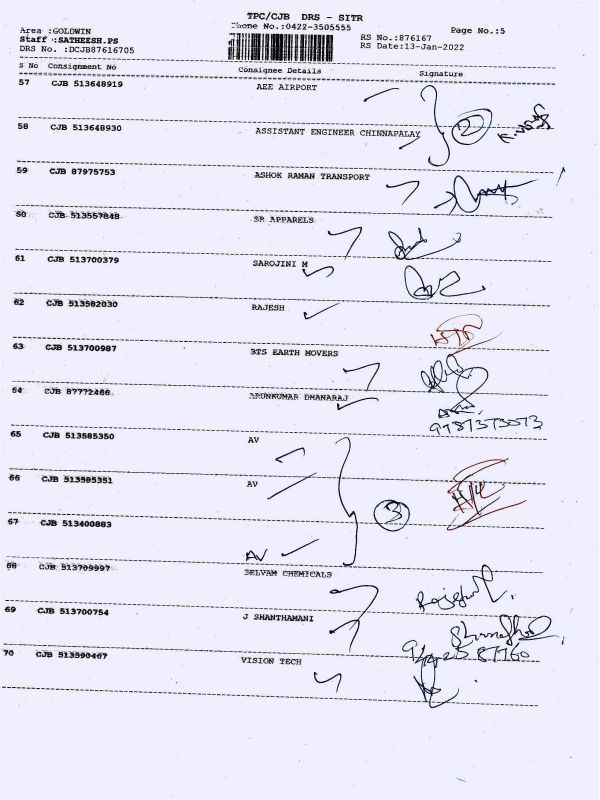 TPC/CJB DRS - SITR
Phone No.:0422-3505555
Area :GOLDWIN
Staff :SATHEESH.PS
DRS No. :DCJB87616705
RS No.:876167
RS Date:13-Jan-2022
Page No.:5
S No Consignment No Consignee Details Signature
57 CJB 513648919 AEE AIRPORT
58 CJB 513648930 ASSISTANT ENGINEER CHINNAPALAY
2
59 CJB 87975753 ASHOK RAMAN TRANSPORT
60 CJB 513557848 SR APPARELS
61 CJB 513700379 SAROJINI M
62 CJB 513582030 RAJESH
63 CJB 513700987 BTS EARTH MOVERS
64 CJB 87772466 ARUNKUMAR DHANARAJ
9787373073
65 CJB 513585350 AV
66 CJB 513585351 AV
3
67 CJB 513400883
AV
68 CJB 513709997 SELVAM CHEMICALS
69 CJB 513700754 J SHANTHAMANI
70 CJB 513590467 VISION TECH